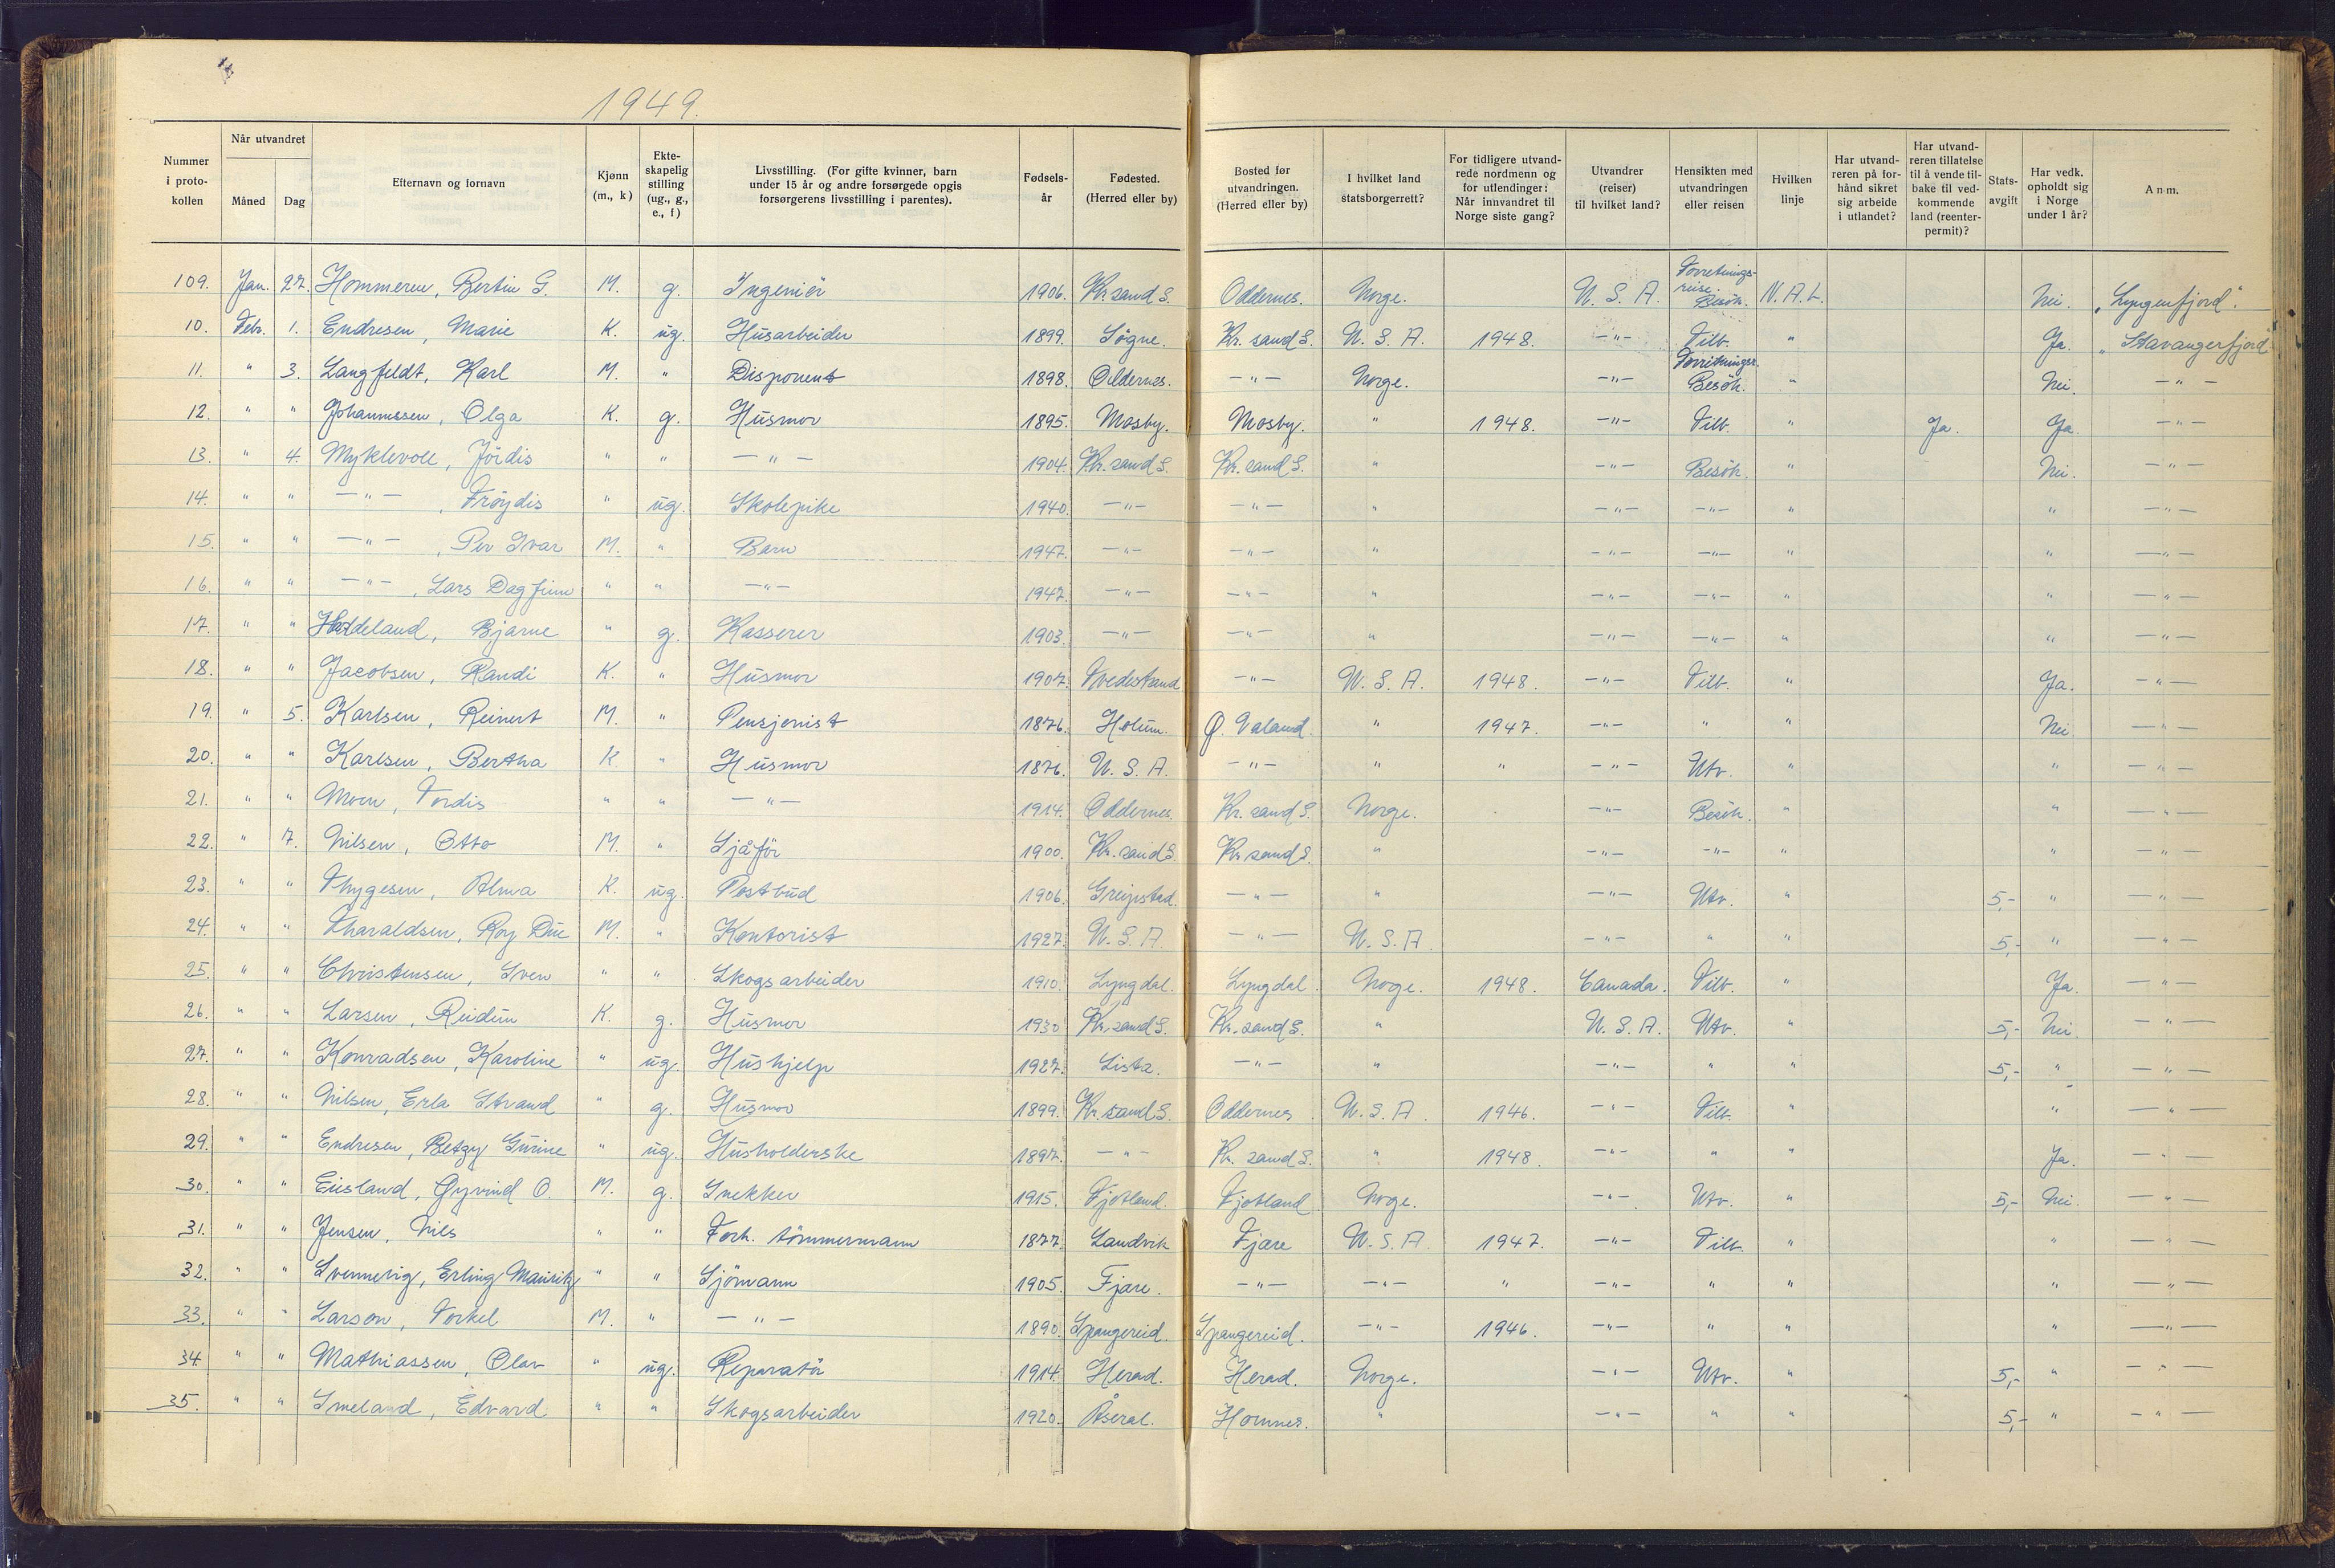 1949.
Nummer i proto-kollen | Når utvandret Måned | Dag | Efternavn og fornavn | Kjønn (m., k) | Ekte-skapelig stilling (ug., g., e., f) | Livsstilling. (For gifte kvinner, barn under 15 år og andre forsørgede opgis forsørgerens livsstilling i parentes). | Fødsels-år | Fødested. (Herred eller by) | Bosted før utvandringen. (Herred eller by) | I hvilket land statsborgerrett? | For tidligere utvand-rede nordmenn og for utlendinger: Når innvandret til Norge siste gang? | Utvandrer (reiser) til hvilket land? | Hensikten med utvandringen eller reisen | Hvilken linje | Har utvand-reren på for-hånd sikret sig arbeide i utlandet? | Har utvand-reren tillatelse til å vende til-bake til ved-kommende land (reenter-permit)? | Stats-avgift | Har vedk. opholdt sig i Norge under 1 år? | Anm.
109. Jan. 27. Hommeren, Bertin G. M. g. Ingeniör 1906. Kr.sand S. Oddernes. Norge. U.S.A. Forretnings-reise. Besök. N.A.L. Nei. "Lyngenfjord".
10. Febr. 1. Endresen, Marie K. ug. Husarbeider 1899. Sögne. Kr.sand S. U.S.A. 1948. —"— Tilb. " Ja. "Stavangerfjord"
11. " 3. Langfeldt, Karl M. " Disponent 1898. Oddernes. —"— Norge. —"— Forretnings. Besök. " Nei. —"—
12. " " Johannessen, Olga K. g. Husmor 1895. Mosby. Mosby. " 1948. —"— Tilb. " Ja. Ja. —"—
13. " 4. Myklevoll, Jördis " " —"— 1904. Kr.sand S. Kr.sand S. " —"— Besök. " Nei. —"—
14. " " —"—, Fröydis " ug. Skolepike 1940. —"— —"— " —"— —"— " " —"—
15. " " —"—, Per Ivar M. " Barn 1947. —"— —"— " —"— —"— " " —"—
16. " " —"—, Lars Dagfinn " " —"— 1947. —"— —"— " —"— —"— " " —"—
17. " " Bjarne " g. Kasserer 1903. —"— —"— " —"— —"— " " —"—
18. " " Jacobsen, Randi K. " Husmor 1907. Tvedestrand —"— U.S.A. 1948. —"— Tilb. " Ja. —"—
19. " 5. Karlsen, Reinert M. " Pensjonist 1876. Holum. Ø. Valand. " 1947. —"— " " Nei —"—
20. " " Karlsen, Bertha K. " Husmor 1876. U.S.A. —"— " " —"— Utv. " " —"—
21. " " Moen, Tordis " " —"— 1914. Oddernes. Kr.sand S. Norge. —"— Besök. " " —"—
22. " 7. Nilsen, Otto M. " Sjåför 1900. Kr.sand S. Kr.sand S. " —"— —"— " " —"—
23. " " Thygesen, Alma K. ug. Postbud 1906. Greipstad. —"— " —"— Utv. " 5,- " —"—
24. " " Tharaldsen, Roy Due M. " Kontorist 1927. U.S.A. —"— U.S.A. —"— " " 5,- " —"—
25. " " Christensen, Sven " " Skogsarbeider 1910. Lyngdal. Lyngdal. Norge. 1948. Canada. Tilb. " Ja. —"—
26. " " Larsen, Reidun K. g. Husmor 1930 Kr.sand S. Kr.sand S. " U.S.A. Utv. " 5,- Nei. —"—
27. " " Konradsen, Karoline " ug. Hushjelp 1927. Lista. —"— " —"— " " 5,- " —"—
28. " " Nilsen, Erla Strand " g. Husmor 1899. Kr.sand S. Oddernes. U.S.A. 1946. —"— Tilb. " " —"—
29. " " Endresen, Betzy Gurine " ug. Husholderske 1897. —"— Kr.sand S. " 1948. —"— " " Ja. —"—
30. " " Eiesland, Øyvind O. M. g. Snekker 1915. Fjotland. Fjotland Norge. —"— Utv. " 5,- Nei. —"—
31. " " Jensen, Nils " " Forh. tömmermann 1877. Landvik Fjære U.S.A. 1947. —"— Tilb. " " —"—
32. " " Svennevig, Erling Mauritz " " Sjömann 1905. Fjære. —"— —"— " —"— " " " —"—
33. " " Larson, Torkel M. " —"— 1890. Spangereid. Spangereid. —"— 1946. —"— " " " —"—
34 " " Mathiassen, Olav " ug. Reparatör 1914. Herad. Herad. Norge. —"— Utv. " 5,- " —"—
35. " " Smeland, Edvard " " Skogsarbeider 1920. Åseral. Hornnes. " —"— " " 5,- " —"—